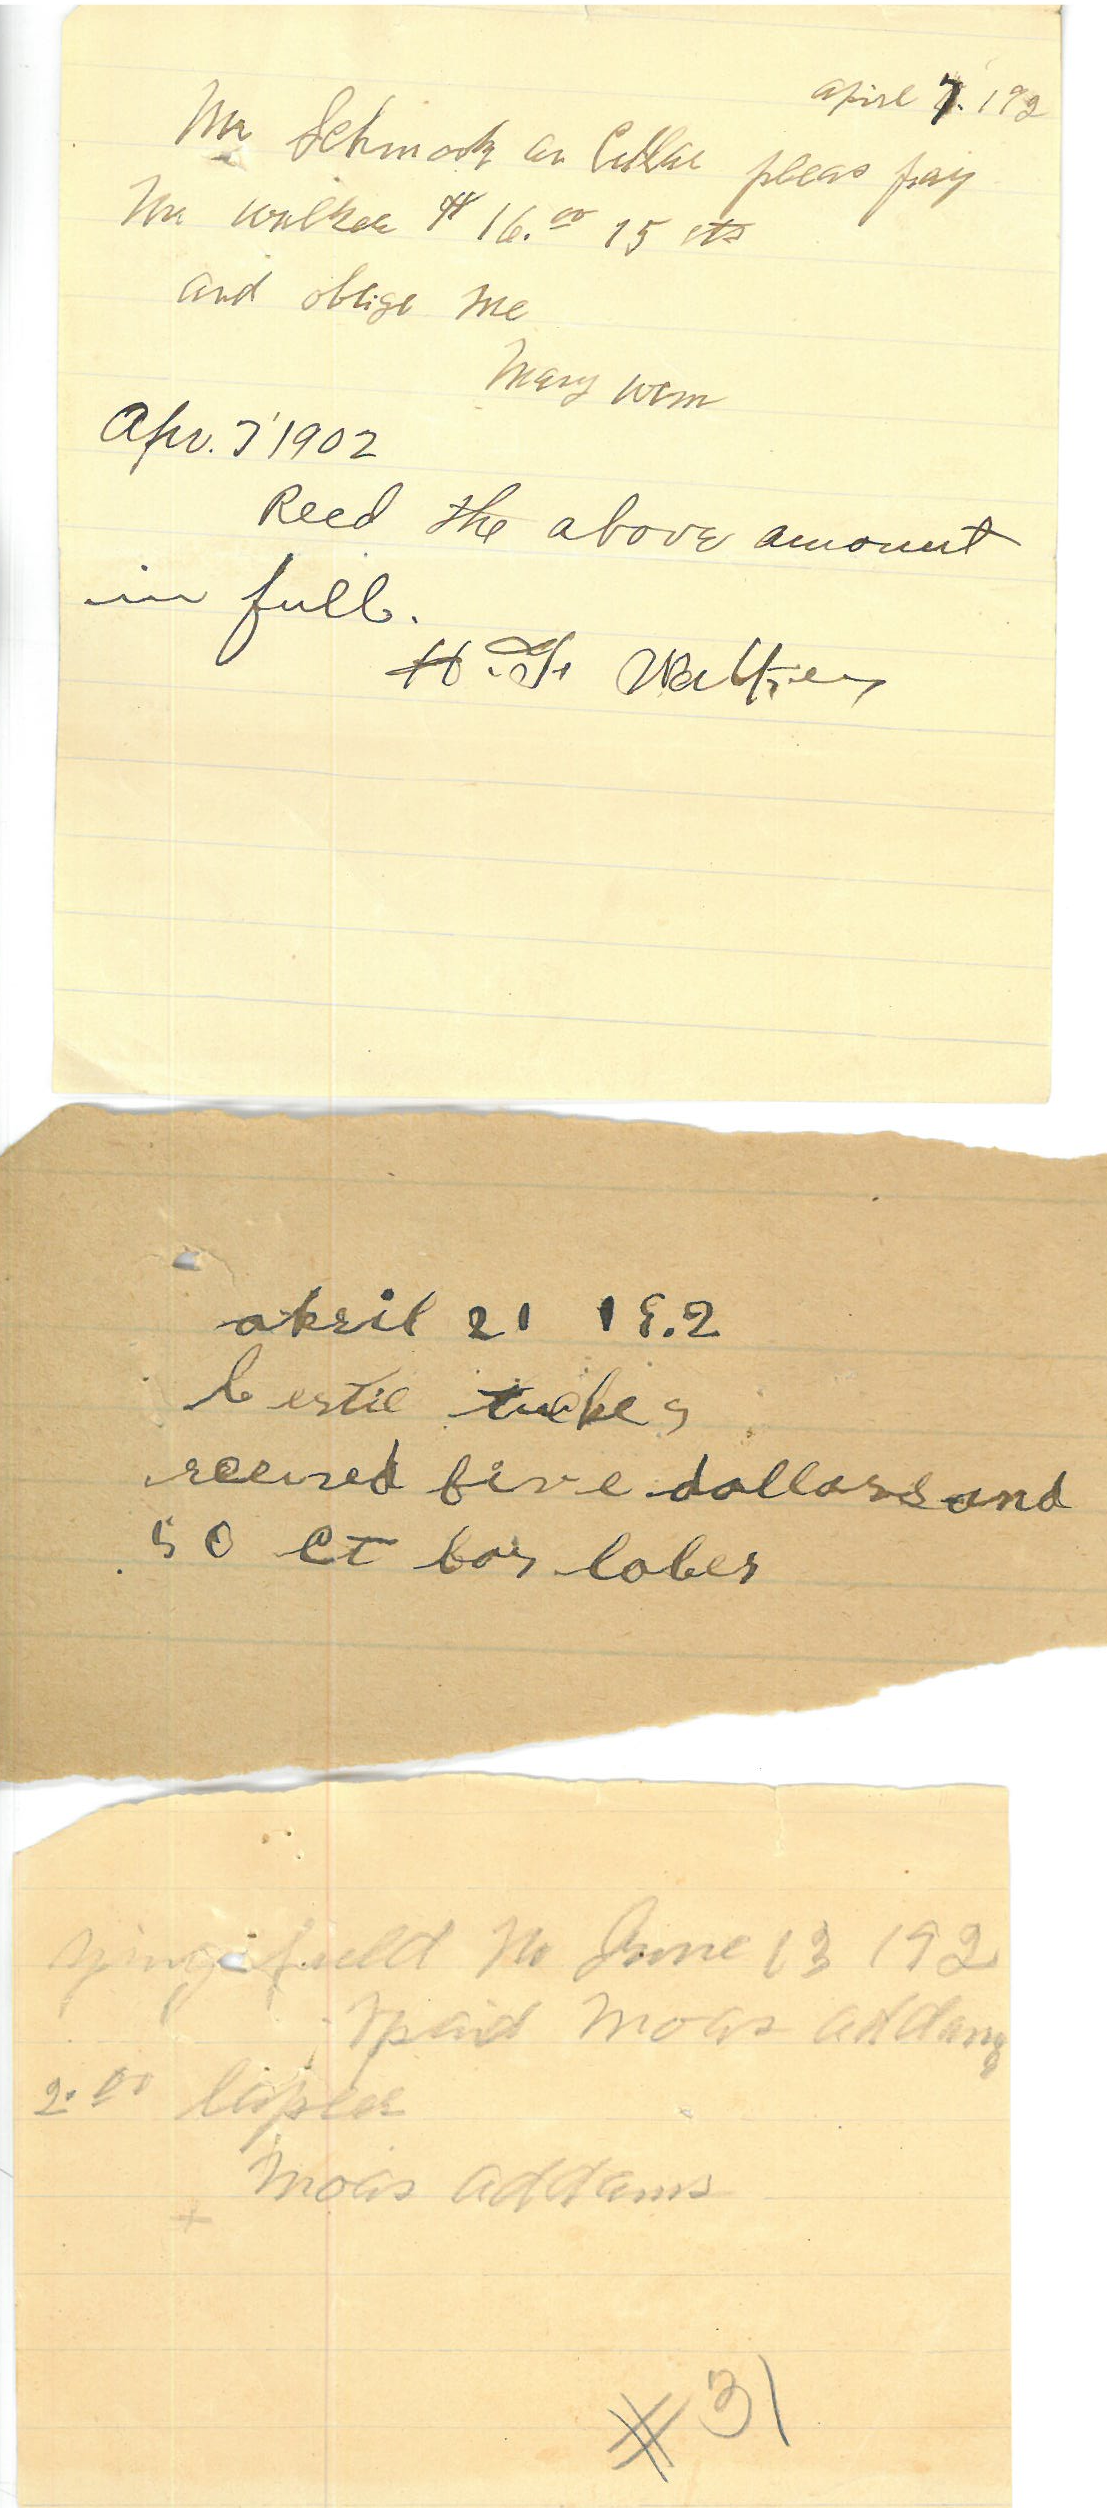 April 7. 192
Mr Schmook an pleas pay
Mr walker $ 16.00 15 cts
and oblige Me
Mary wom
Apr. 7' 1902
Recd the above amount
in full.
H. F.
akril 21 19.2
bertie tucker
receired five dollars and
50 ct for laber
springfield Mo June 13 192
I paid moas addams
2.00
moas addams
# 31